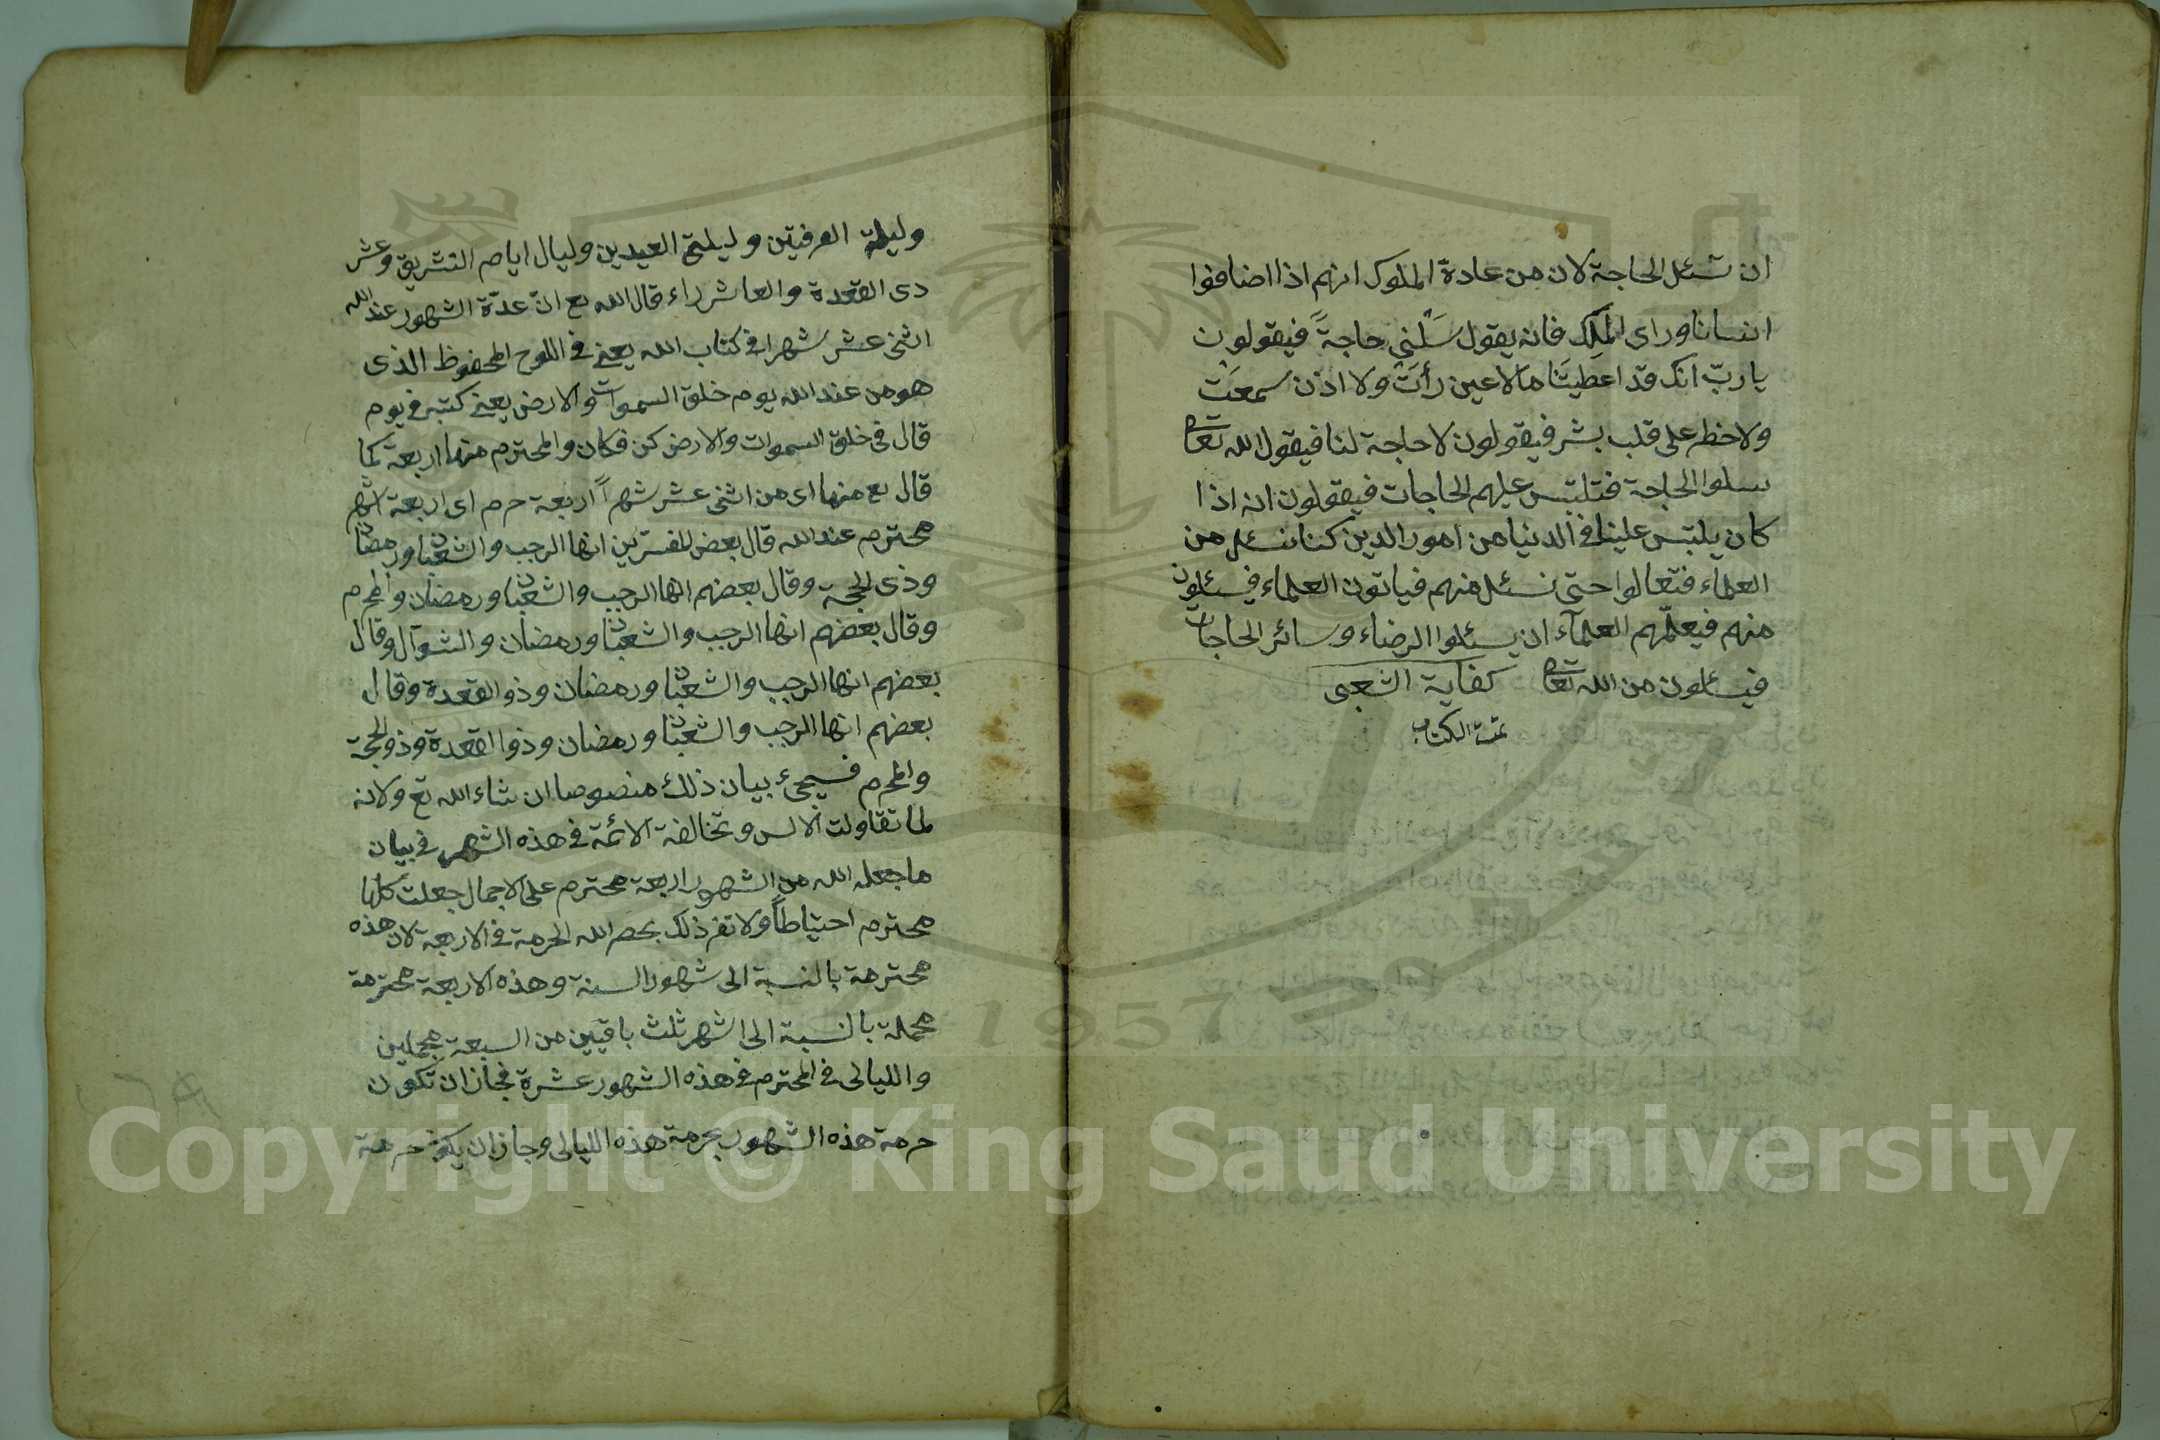 ان تسئل الحاجة لان من عادة الملوك انهم اذا اضافوا
انسانا وراى الملك فانه يقول سلنى حاجة فيقولون
يا رب انك قد اعطيتنا ما لا عين رأت ولا اذن سمعت
ولا خطر على قلب بشر فيقولون لا حاجة لنا فيقول الله تعالى
سلوا الحاجة فتلتبس عليهم الحاجات فيقولون انه اذا
كان يلتبس علينا فى الدنيا من امور الدين كنا نسئل من
العلماء فتعالوا حتى نسئل منهم فياتون العلماء فيسئلون
منهم فيعلّمهم العلمآء ان يسئلوا الرضاء وسائر الحاجات
فيسئلون من الله تعالى كفاية الشعبى
تمت الكتاب
وليلة العرفتين وليلتى العيدين وليال ايام التشريق وعشر
ذى القعدة والعاشراء قال الله تع انّ عدّة الشهور عند الله
اثنى عشر شهرا فى كتاب الله يعنى فى اللوح المحفوظ الذى
هو من عند الله يوم خلق السموات والارض يعنى كتبه فى يوم
قال فى خلق السموات والارض كن فكان والمحترم منها اربعة كما
قال تع منها اى من اثنى عشر شهراً اربعة حرم اى اربعة اشهر
محترم عند الله قال بعض المفسّرين انها الرجب والشعبان ورمضان
وذى الحجة وقال بعضهم انها الرجب والشعبان ورمضان والمحرم
وقال بعضهم انها الرجب والشعبان ورمضان والشوّال وقال
بعضهم انها الرجب والشعبان ورمضان وذو القعدة وقال
بعضهم انها الرجب والشعبان ورمضان وذوا القعدة وذو الحجة
والمحرم فسيجىء بيان ذلك منصوصا ان شاء الله تع ولانه
لما تقاولت الالس وتخالفة الائمة فى هذه الشهر فى بيان
ما جعله الله من الشهور اربعة محترم على الاجمال جعلت كلها
محترم احتياطاً ولا تغر ذلك بحصر الله الحرمة فى الاربعة لان هذه
محترمة بالنسبة الى شهور السنة وهذه الاربعة محترمة
مجملة بالنسبة الى اشهر ثلث باقيين من السبعة مجملين
والليالى فى المحترم فى هذه الشهور عشرة فجاز ان تكون
حرمة هذه الشهور بحرمة هذه الليالى وجاز ان يكون حرمة
Copyright © King Saud University
1957